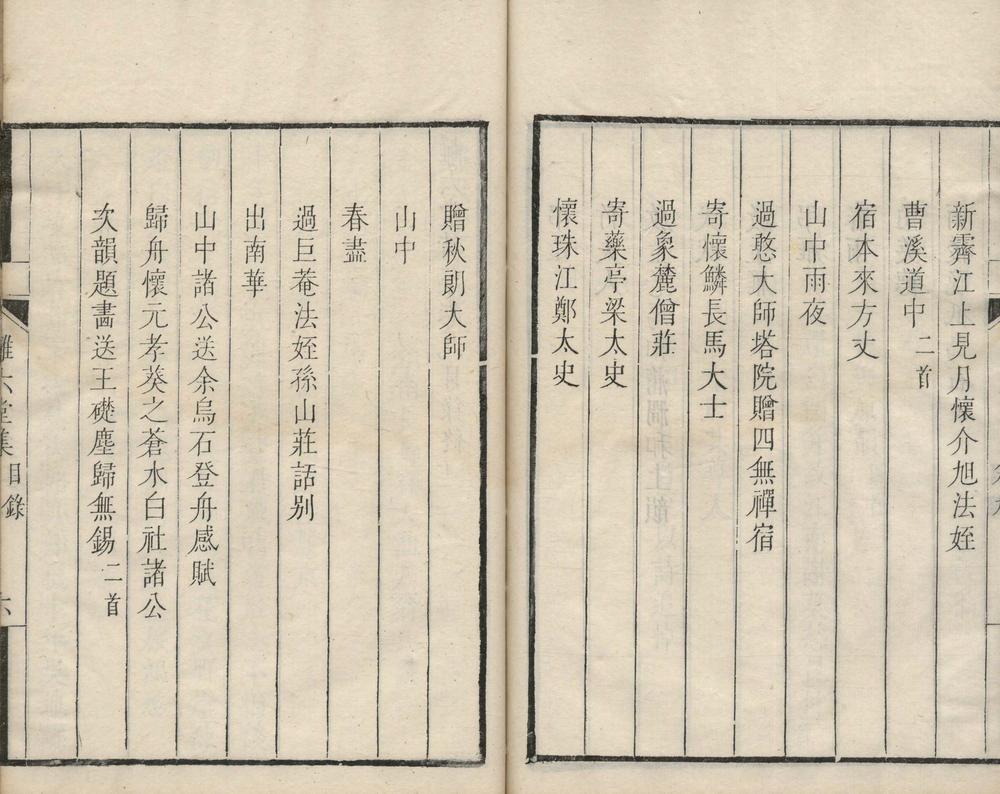 新霽江上見月懷介旭法姪
曹溪道中 二首
宿本來方丈
山中雨夜
過憨大師塔院贈四無禪宿
寄懷鱗長馬大士
過象麓僧莊
寄藥亭梁太史
懷珠江鄭太史
贈秋朗大師
山中
春盡
過巨菴法姪孫山莊話别
出南華
山中諸公送余烏石登舟感賦
歸舟懷元孝葵之蒼水白社諸公
次韻題畵送王礎塵歸無錫 二首
離六堂集 目錄 六